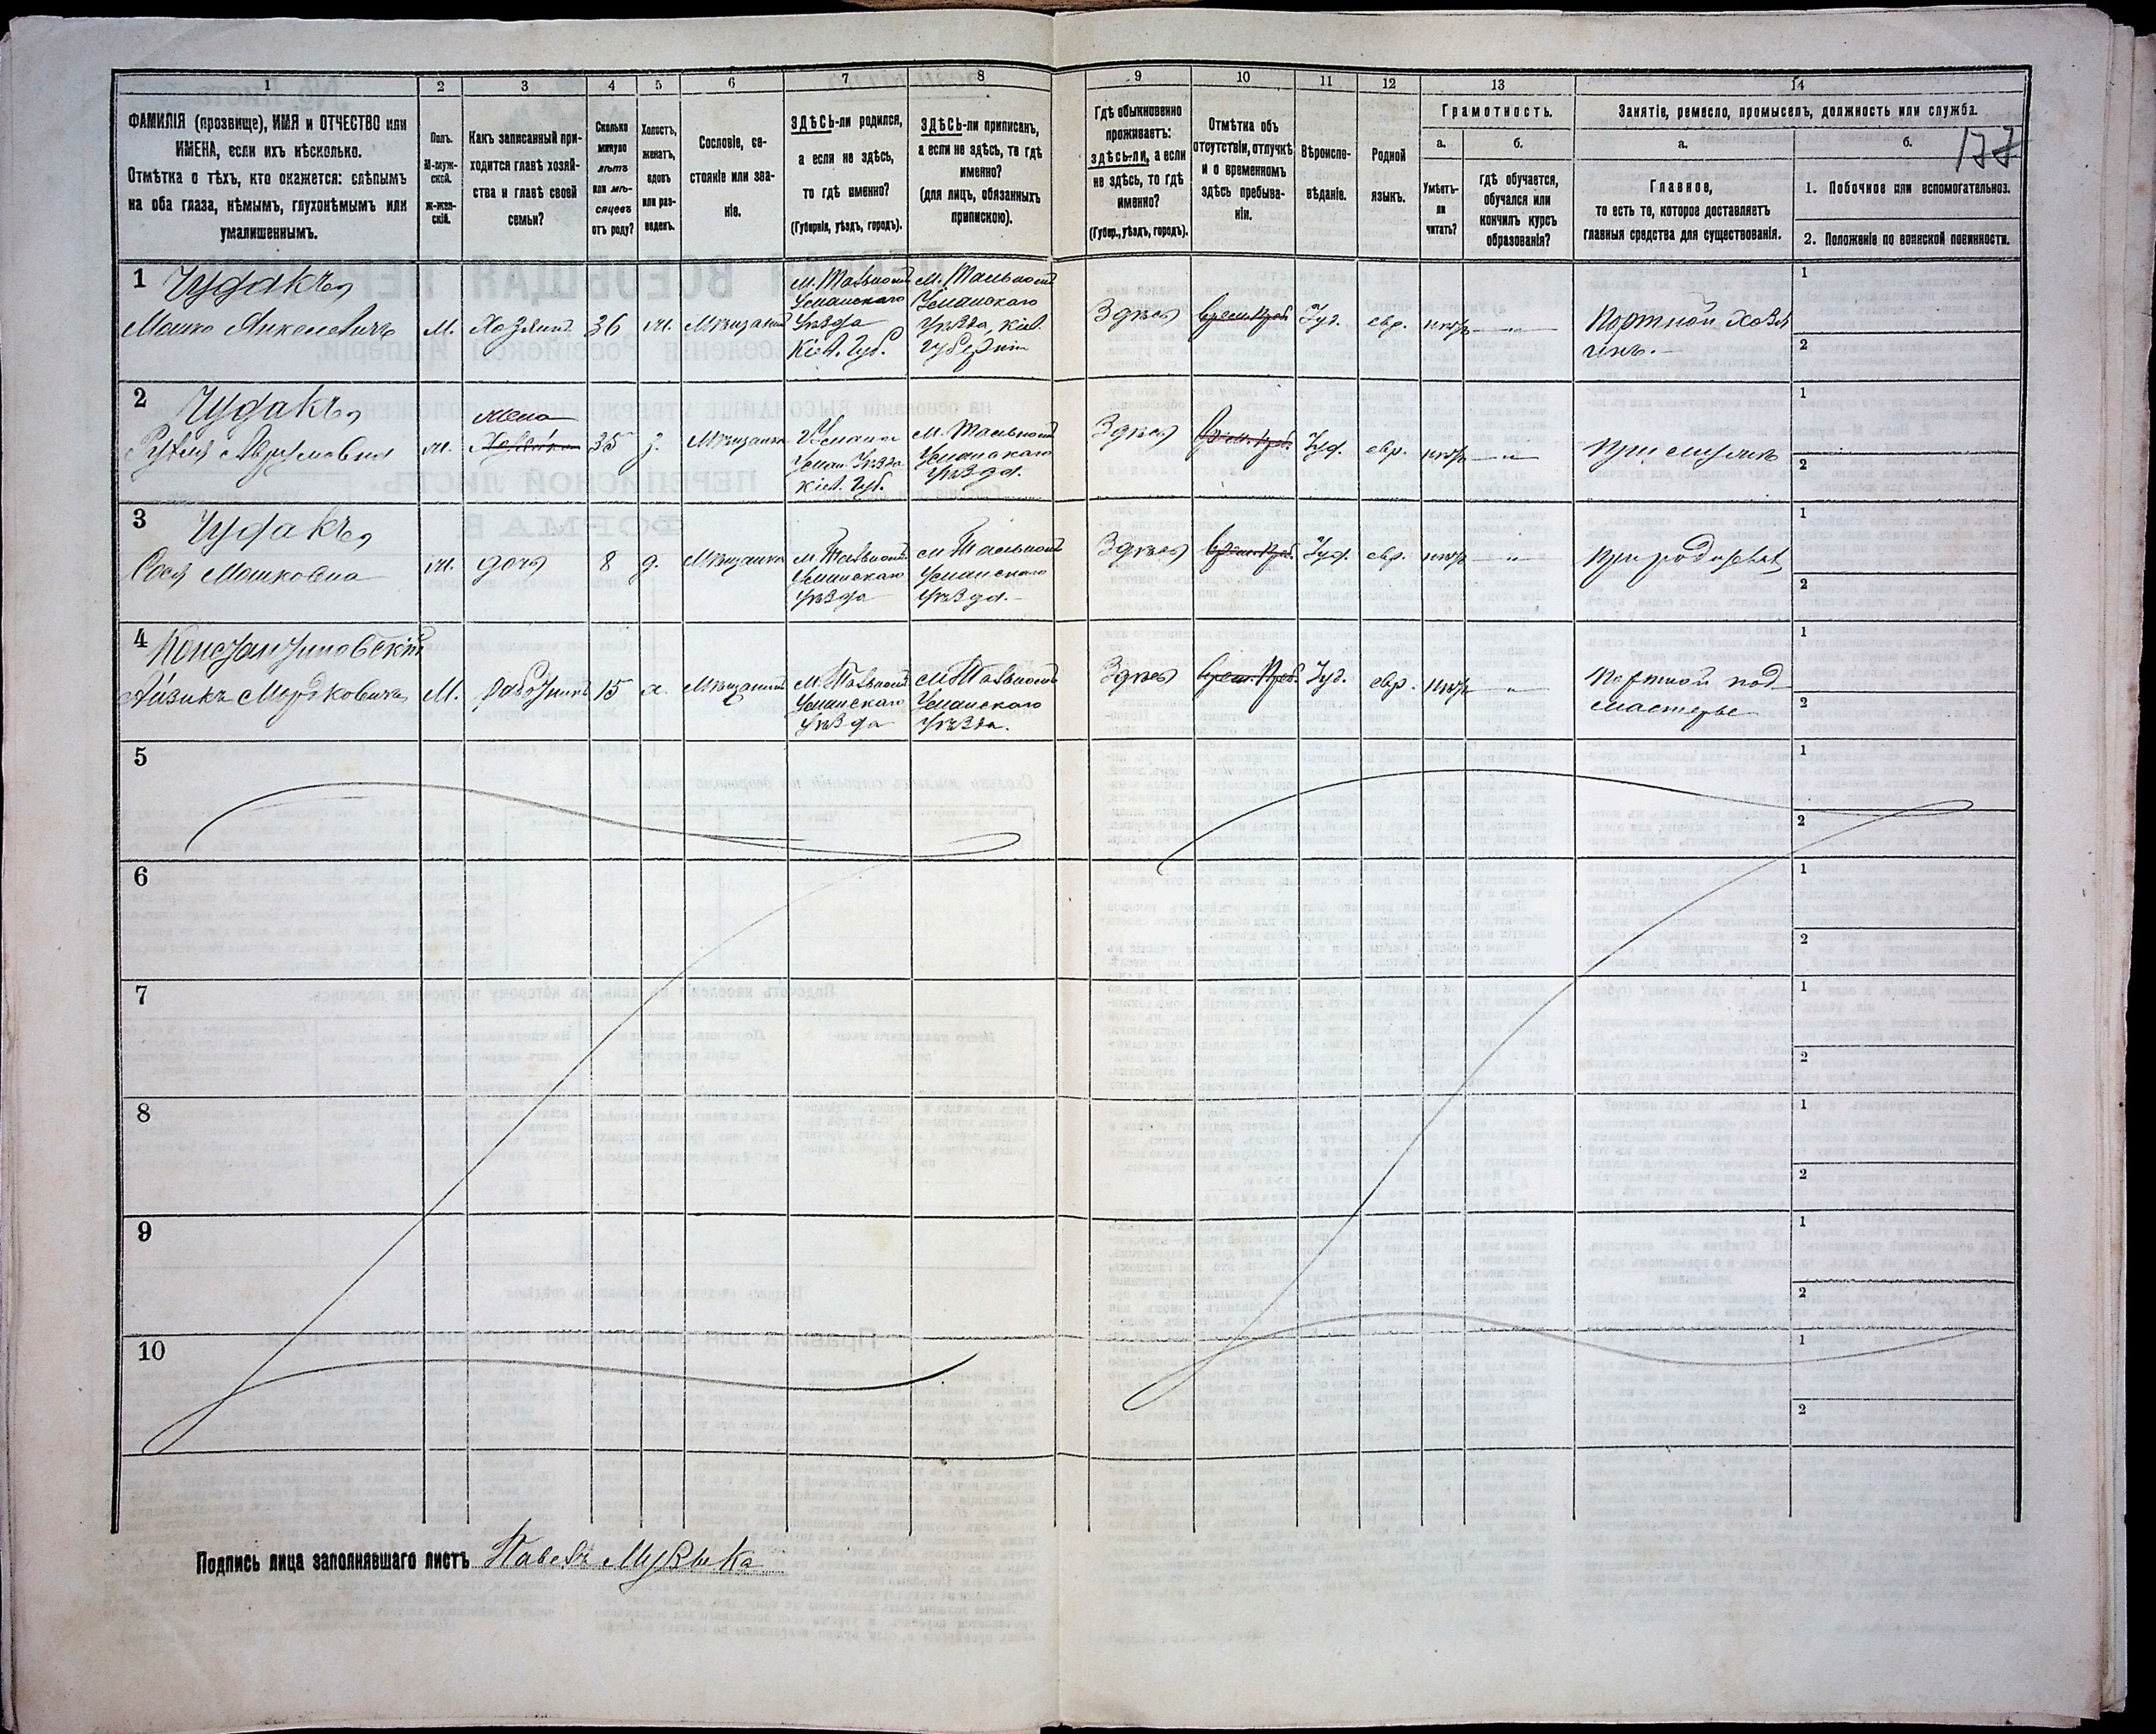 1 2 3 4 5 6 7 8 9 10 11 12 13 14
ФАМИЛІЯ (прозвище), ИМЯ и ОТЧЕСТВО или
ИМЕНА, если ихъ нѣсколько.
Отмѣтка о тѣхъ, кто окажется: слѣпымъ
на оба глаза, нѣмымъ, глухонѣмымъ или
умалишеннымъ.
Полъ.
М-муж-
ской.
ж-жен-
скій.
Какъ записанный при-
ходится главѣ хозяй-
ства и главѣ своей
семьи?
Сколько
минуло
лѣтъ
или мѣ-
сяцевъ
отъ роду?
Холостъ,
женатъ,
вдовъ
или раз-
веденъ.
Сословіе, со-
стояніе или зва-
ніе.
ЗДѢСЬ-ли родился,
а если не здѣсь,
то гдѣ именно?
(Губернія, уѣздъ, городъ).
ЗДѢСЬ-ли приписанъ,
а если не здѣсь, то гдѣ
именно?
(для лицъ, обязанныхъ
припискою).
Гдѣ обыкновенно
проживаетъ:
здѣсь-ли, а если
не здѣсь, то гдѣ
именно?
(Губер., уѣздъ, городъ).
Отмѣтка объ
отсутствіи, отлучкѣ
и о временномъ
здѣсь пребыва-
ніи.
Вѣроиспо-
вѣданіе.
Родной
языкъ.
Грамотность.
а.
Умѣетъ-
ли
читать?
б.
гдѣ обучается,
обучался или
кончилъ курсъ
образованія?
Занятіе, ремесло, промыселъ, должность или служба.
а.
Главное,
то есть то, которое доставляетъ
главныя средства для существованія.
б.
177
1. Побочное или вспомогательное.
2. Положеніе по воинской повинности.
1 Чудакъ,
Мошко Анкелевичъ
М.
Хозяинъ
36
ж.
Мѣщанинъ
м. Тальномъ
Уманскаго
Уѣзда
Кіев. Губ.
м. Тальномъ
Уманскаго
Уѣзда, Кіев.
Губерніи
Здѣсь
Врем. Преб.
Іуд.
евр.
нѣтъ
"
Портной хозя
инъ.
1
2
2 Чудакъ,
Аврумовна
ж.
жена
Хозяйка
35
з.
Мѣщанка
Умань
Уман. Уѣзда
Кіев. Губ.
м. Тальномъ
Уманскаго
Уѣзда.
Здѣсь
Врем. Преб.
Іуд.
евр.
нѣтъ
"
При мужѣ
1
2
3 Чудакъ,
Сося Мошковна
ж.
дочь
8
д.
Мѣщанка
м. Тальномъ
Уманскаго
Уѣзда
м. Тальномъ
Уманскаго
Уѣзда.
Здѣсь
Врем. Преб.
Іуд.
евр.
нѣтъ
"
При родителяхъ
1
2
4 Константиновскій
Айзикъ Мордковичъ
М.
работникъ
15
х.
Мѣщанинъ
м. Тальномъ
Уманскаго
Уѣзда
м. Тальномъ
Уманскаго
Уѣзда.
Здѣсь
Врем. Преб.
Іуд.
евр.
нѣтъ
"
Портной под
мастерье
1
2
5
1
2
6
1
2
7
1
2
8
1
2
9
1
2
10
1
2
Подпись лица заполнявшаго листъ Павелъ Музыка